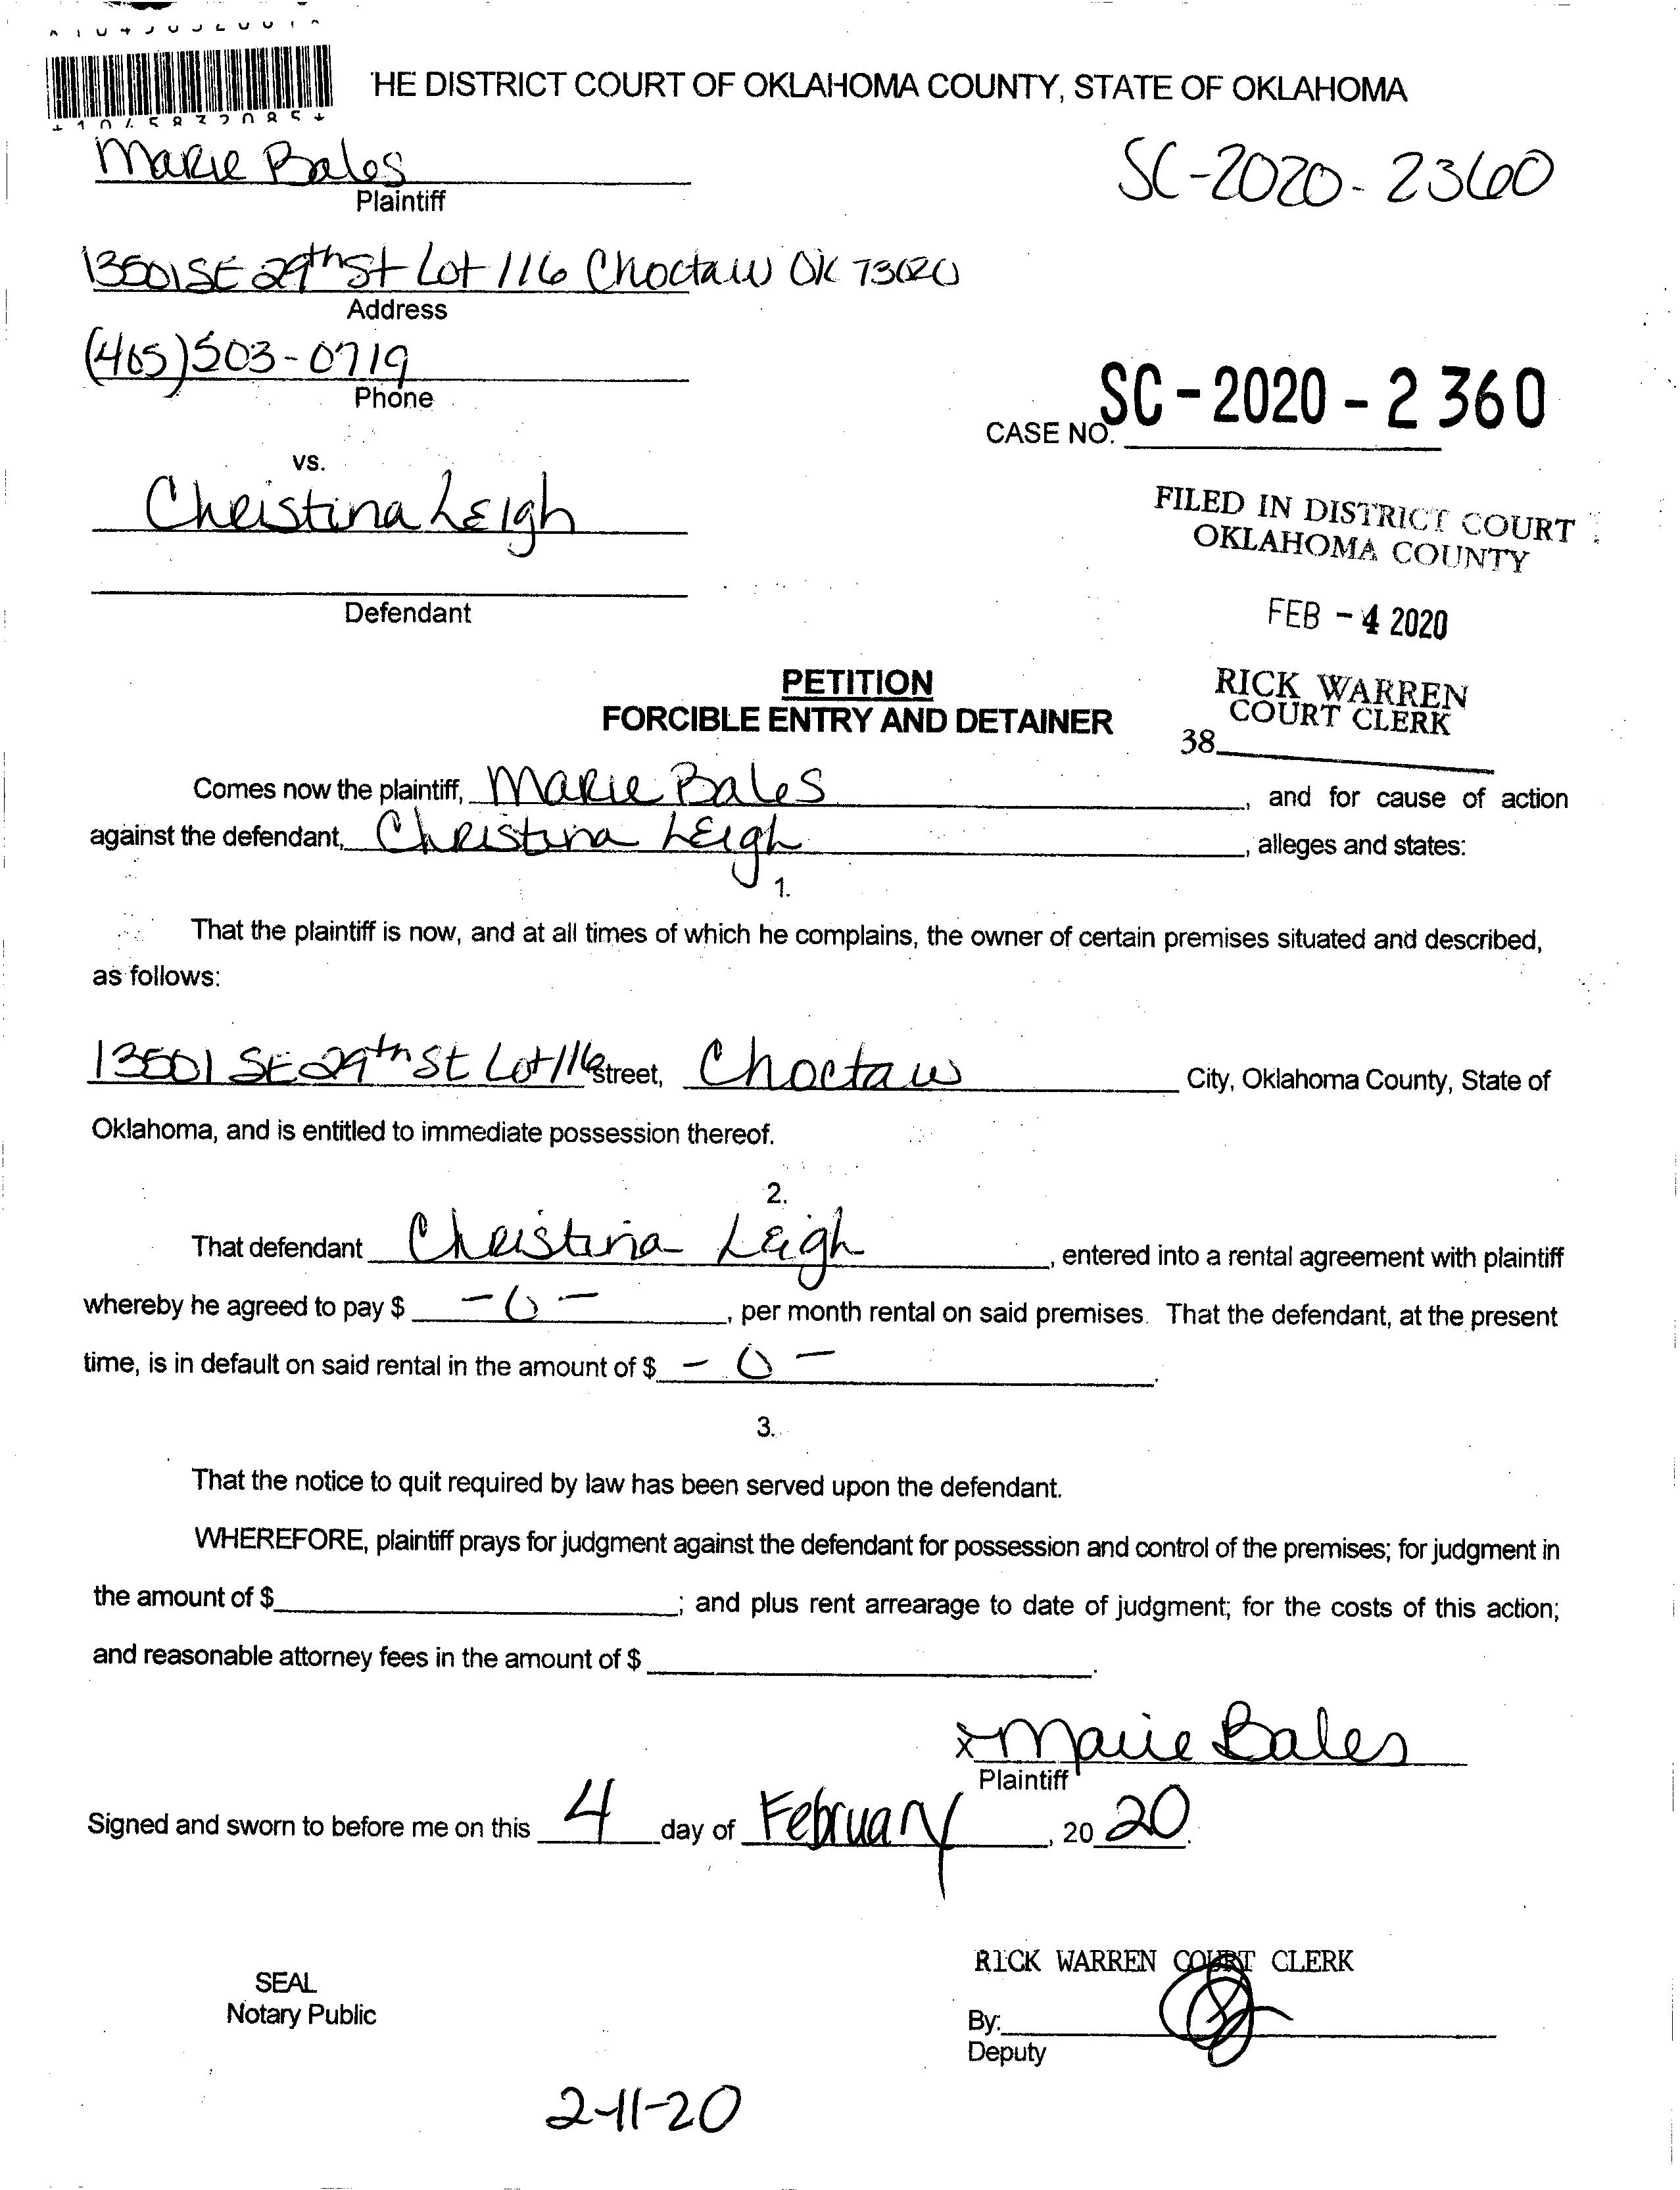 'HE DISTRICT COURT OF OKLAHOMA COUNTY, STATE OF OKLAHOMA
Marie Bales
Plaintiff
SC-2020-2360
13501 SE 29th St Lot 116 Choctaw OK 73020
Address
(405) 503-0719
Phone
CASE NO. SC-2020-2360
vs.
Christina Leigh
Defendant
FILED IN DISTRICT COURT
OKLAHOMA COUNTY
FEB -4 2020
RICK WARREN
COURT CLERK
38
PETITION
FORCIBLE ENTRY AND DETAINER
Comes now the plaintiff, Marie Bales, and for cause of action
against the defendant, Christina Leigh, alleges and states:
1.
That the plaintiff is now, and at all times of which he complains, the owner of certain premises situated and described,
as follows:
13501 SE 29th St Lot 116 Street, Choctaw City, Oklahoma County, State of
Oklahoma, and is entitled to immediate possession thereof.
2.
That defendant Christina Leigh, entered into a rental agreement with plaintiff
whereby he agreed to pay $ -0-, per month rental on said premises. That the defendant, at the present
time, is in default on said rental in the amount of $ -0-.
3.
That the notice to quit required by law has been served upon the defendant.
WHEREFORE, plaintiff prays for judgment against the defendant for possession and control of the premises; for judgment in
the amount of $; and plus rent arrearage to date of judgment; for the costs of this action;
and reasonable attorney fees in the amount of $.
x Marie Bales
Plaintiff
Signed and sworn to before me on this 4 day of February, 2020.
RICK WARREN COURT CLERK
SEAL
Notary Public
By:
Deputy
2-11-20